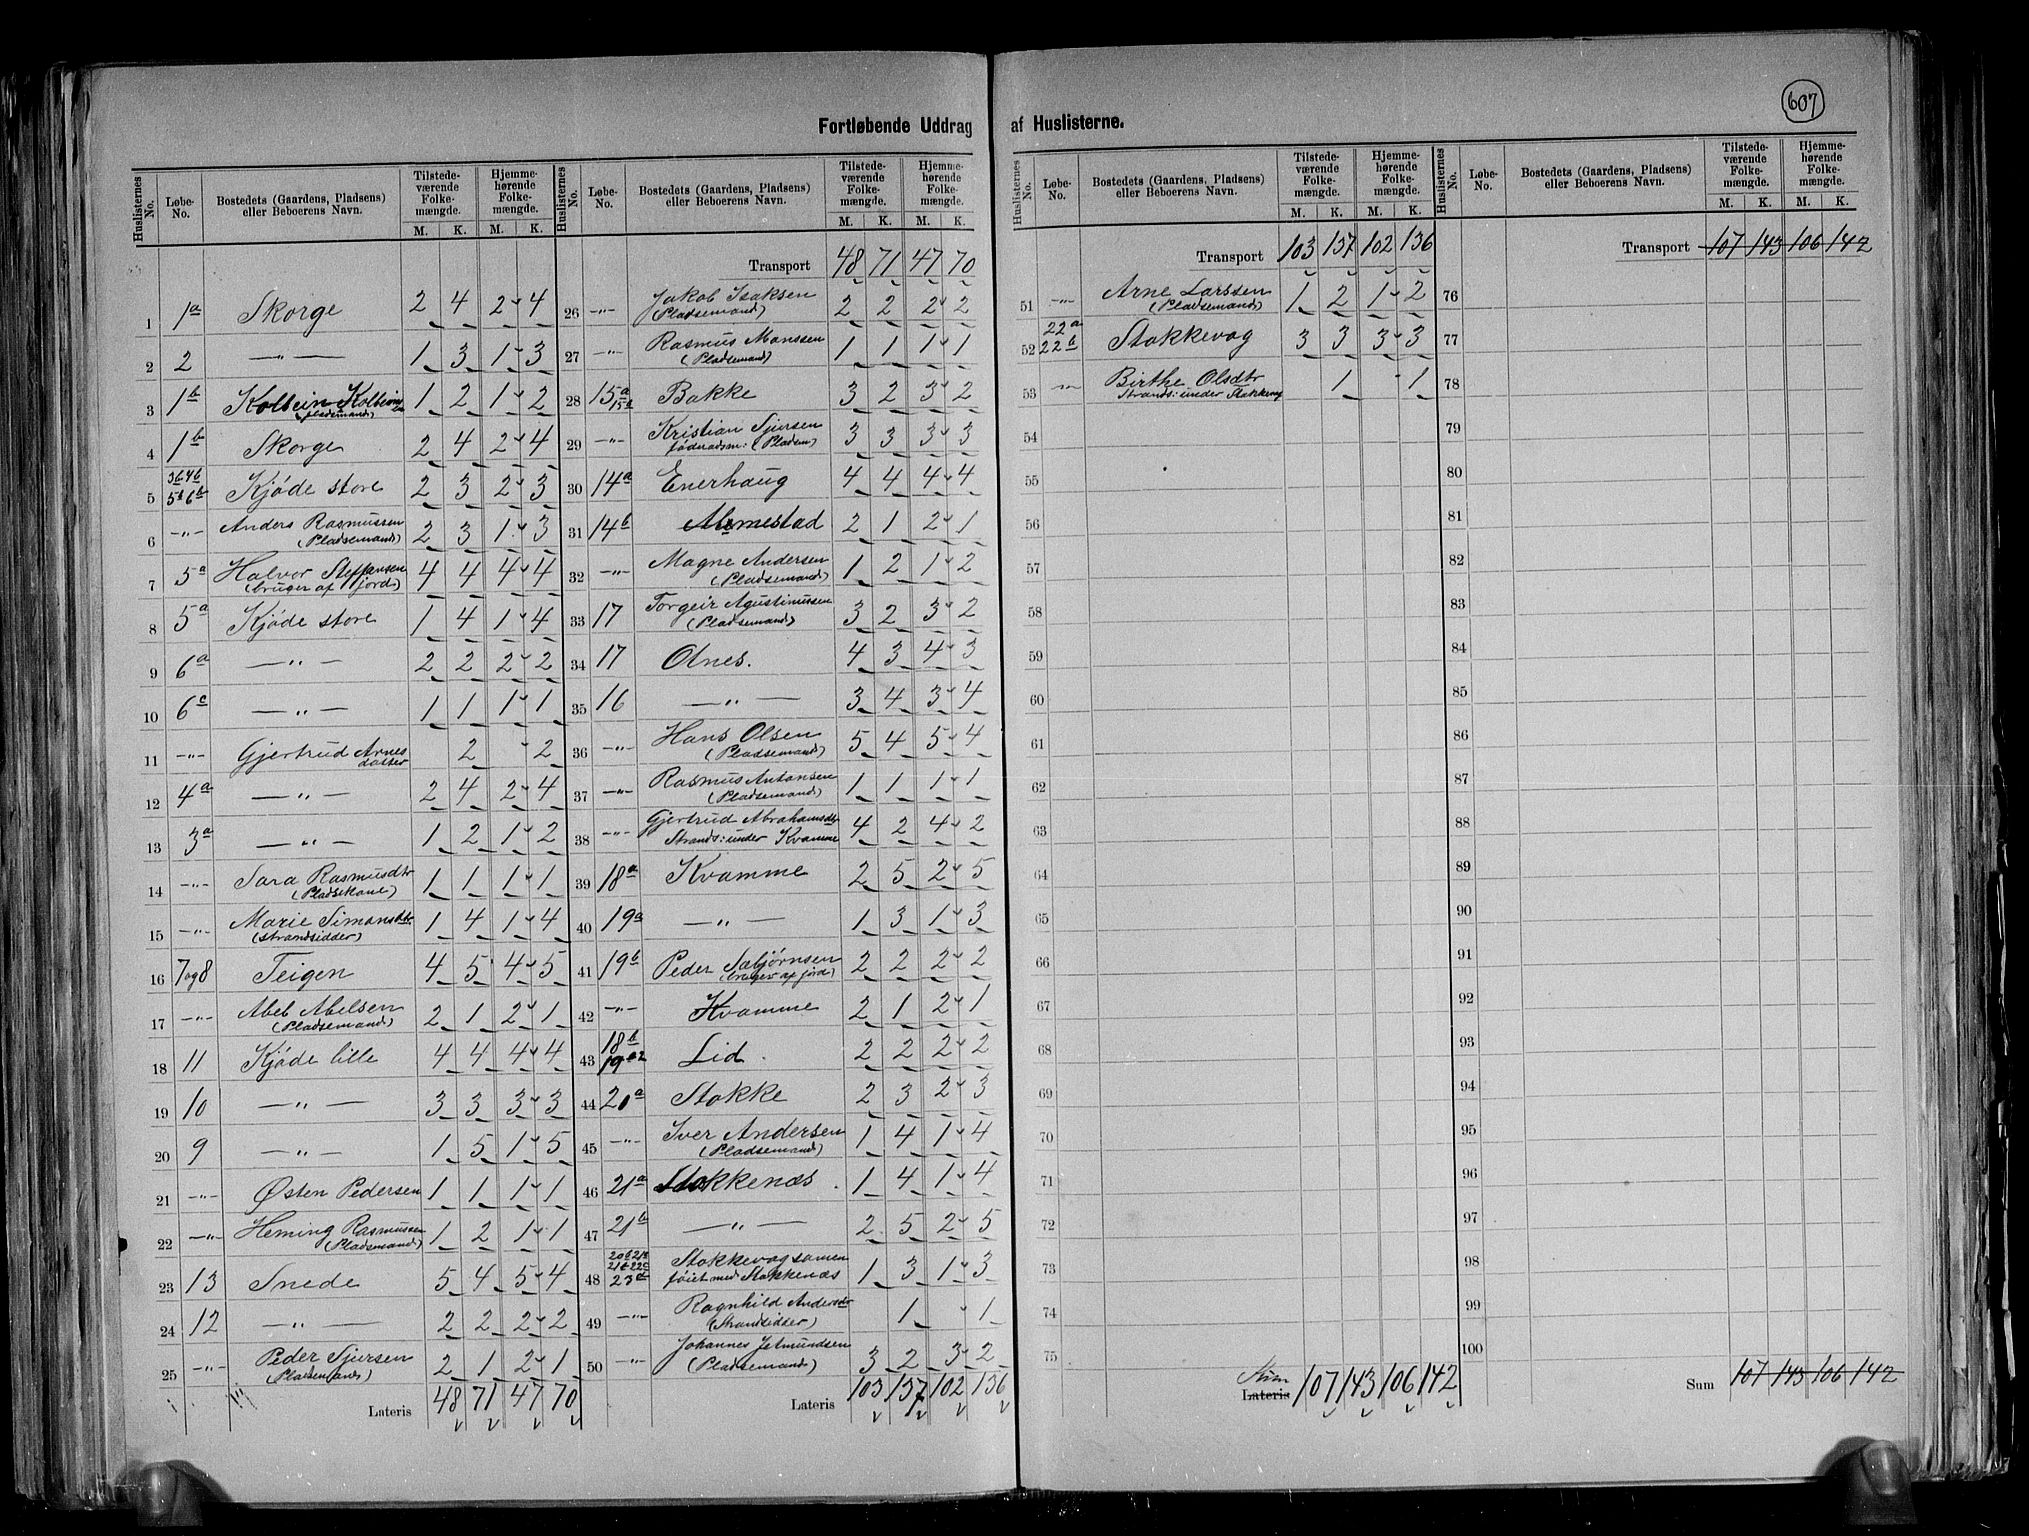 607
Fortløbende Uddrag af Huslisterne.
Huslisternes No. Løbe-No. Bostedets (Gaardens, Pladsens) eller Beboerens Navn. Tilstedeværende Folkemængde. M. K. Hjemmehørende Folkemængde. M. K.
1 1a Skorge 2 4 2 4
2 2 —"— 1 3 1 3
3 1b Kolbein Kolbeins (pladsemand) 1 2 1 2
4 1b Skorge 2 4 2 4
5 3b 4b 5b 6b Kjøde store 2 3 2 3
6 -"- Anders Rasmussen (Pladsemand) 2 3 1 3
7 5a Halvor Steffansen (bruger af jord) 4 4 4 4
8 5a Kjøde store 1 4 1 4
9 6a —"— 2 2 2 2
10 6c —"— 1 1 1 1
11 -"- Gjertrud Arnesdatter 2 2
12 4a —"— 2 4 2 4
13 3a —"— 1 2 1 2
14 -"- Sara Rasmusdtr (Pladsekone) 1 1 1 1
15 -"- Marie Simonsdtr. (Strandsidder) 1 4 1 4
16 7og8 Teigen 4 5 4 5
17 -"- Abel Abelsen (Pladsemand) 2 1 2 1
18 11 Kjøde lille 4 4 4 4
19 10 —"— 3 3 3 3
20 9 —"— 1 5 1 5
21 -"- Østen Pedersen 1 1 1 1
22 -"- Heming Rasmussen (Pladsemand) 1 2 1 1
23 13 Snede 5 4 5 4
24 12 —"— 2 2 2 2
25 -"- Peder Sjursen (Pladsemand) 2 1 2 1
Lateris 48 71 47 70
Huslisternes No. Løbe-No. Bostedets (Gaardens, Pladsens) eller Beboerens Navn. Tilstedeværende Folkemængde. M. K. Hjemmehørende Folkemængde. M. K.
Transport 48 71 47 70
26 -"- Jakob Isaksen (Pladsemand) 2 2 2 2
27 -"- Rasmus Monssen (Pladsemand) 1 1 1 1
28 15a 15b Bakke 3 2 3 2
29 -"- Kristian Sjursenføderaadsm: (Pladsem) 3 3 3 3
30 14a Enerhaug 4 4 4 4
31 14b Almestad 2 1 2 1
32 -"- Magne Andersen (Pladsemand) 1 2 1 2
33 17 Torgeir Agustinussen (Pladsemand) 3 2 3 2
34 17 Otnes. 4 3 4 3
35 16 —"— 3 4 3 4
36 -"- Hans Olsen (Pladsemand) 5 4 5 4
37 -"- Rasmus Antonsen (Pladsemand) 1 1 1 1
38 -"- Gjertrud Abrahamsdtr Strands: under Kvamme 4 2 4 2
39 18a Kvamme 2 5 2 5
40 19a —"— 1 3 1 3
41 19b Peder Sæbjørnsen (bruger af jord) 2 2 2 2
42 -"- Kvamme 2 1 2 1
43 18b 19c2 Lid. 2 2 2 2
44 20a Stokke 2 3 2 3
45 -"- Iver Andersen (Pladsemand) 1 4 1 4
46 21a Stokkenæs. 1 4 1 4
47 21b —"— 2 5 2 5
48 Stokkevog samen føiet med Stokkenæs 1 3 1 3
49 -"- Ragnhild Andersdtr (Strandsidder) 1 1
50 -"- Johannes Jetmundsen (Pladsemand) 3 2 3 2
Lateris 103 137 102 136
Huslisternes No. Løbe-No. Bostedets (Gaardens, Pladsens) eller Beboerens Navn. Tilstedeværende Folkemængde. M. K. Hjemmehørende Folkemængde. M. K.
Transport 103 137 102 136
51 -"- Arne Larssen (Pladsemand) 1 2 1 2
52 22a 22b Stokkevog 3 3 3 3
53 -"- Birthe Olsdtr Strands: under Stokkevog 1 1
54
55
56
57
58
59
60
61
62
63
64
65
66
67
68
69
70
71
72
73
74
75
Sum
Lateris 107 143 106 142
Huslisternes No. Løbe-No. Bostedets (Gaardens, Pladsens) eller Beboerens Navn. Tilstedeværende Folkemængde. M. K. Hjemmehørende Folkemængde. M. K.
Transport 107 143 106 142
76
77
78
79
80
81
82
83
84
85
86
87
88
89
90
91
92
93
94
95
96
97
98
99
100
Sum 107 143 106 142